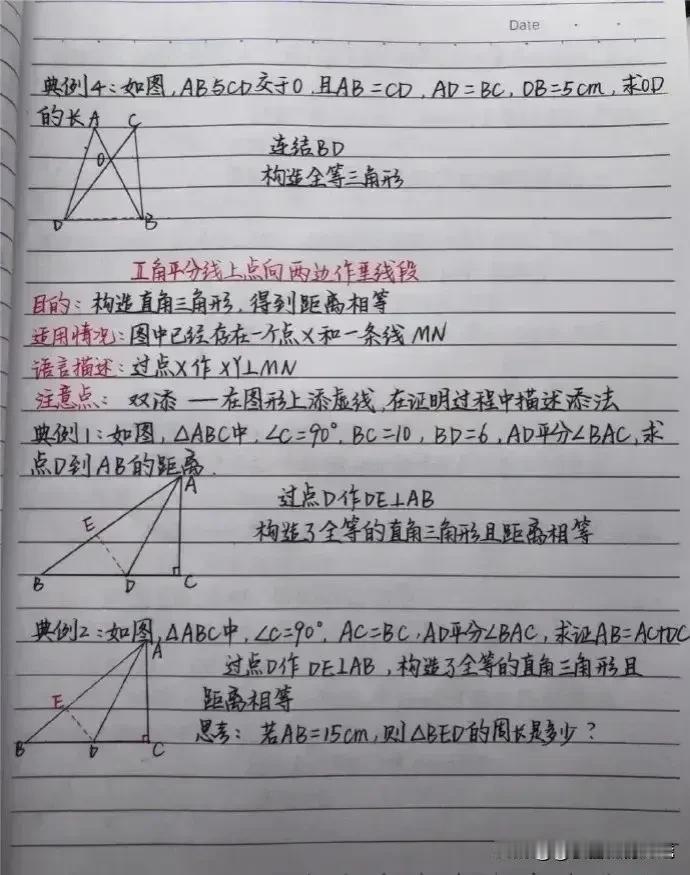 Date
典例4:如图,AB与CD交于O,且AB=CD,AD=BC,OB=5cm,求OD
的长
A C
连结BD
O
构造全等三角形
D B
工角平分线上点向两边作垂线段
目的:构造直角三角形,得到距离相等
适用情况:图中已经存在一个点X和一条线MN
语言描述:过点X作XY⊥MN
注意点:双添——在图形上添虚线,在证明过程中描述添法
典例1:如图,△ABC中,∠C=90°,BC=10,BD=6,AD平分∠BAC,求
点D到AB的距离.
A
过点D作DE⊥AB
E
构造了全等的直角三角形且距离相等
B D C
典例2:如图,△ABC中,∠C=90°,AC=BC,AD平分∠BAC,求证AB=AC+DC
A
过点D作DE⊥AB,构造了全等的直角三角形且
E
距离相等
思考:若AB=15cm,则△BED的周长是多少?
B D C